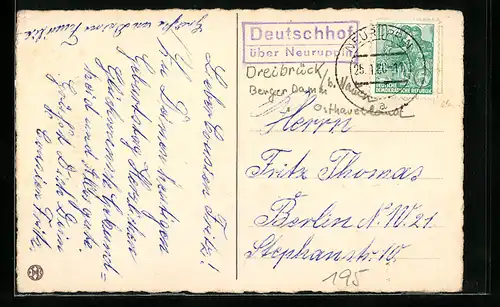 Grüße von Deiner Familie
Lieber Cousin Fritz!
Zu Deinem heutigen
Geburtstag Herzlichen
Glückwunsch Gesund-
heit und Alles gute.
Grüßt Dich Dein
Cousin Fritz.
Deutschhof
über Neuruppin
NEURUPPIN
25.1.60
a
DEUTSCHE
DEMOKRATISCHE REPUBLIK
Dreibrück
Berger Damm
b. Nauen
Osthavelland
Herrn
Fritz Thomas
Berlin N.W. 21
Stephanstr. 10
195